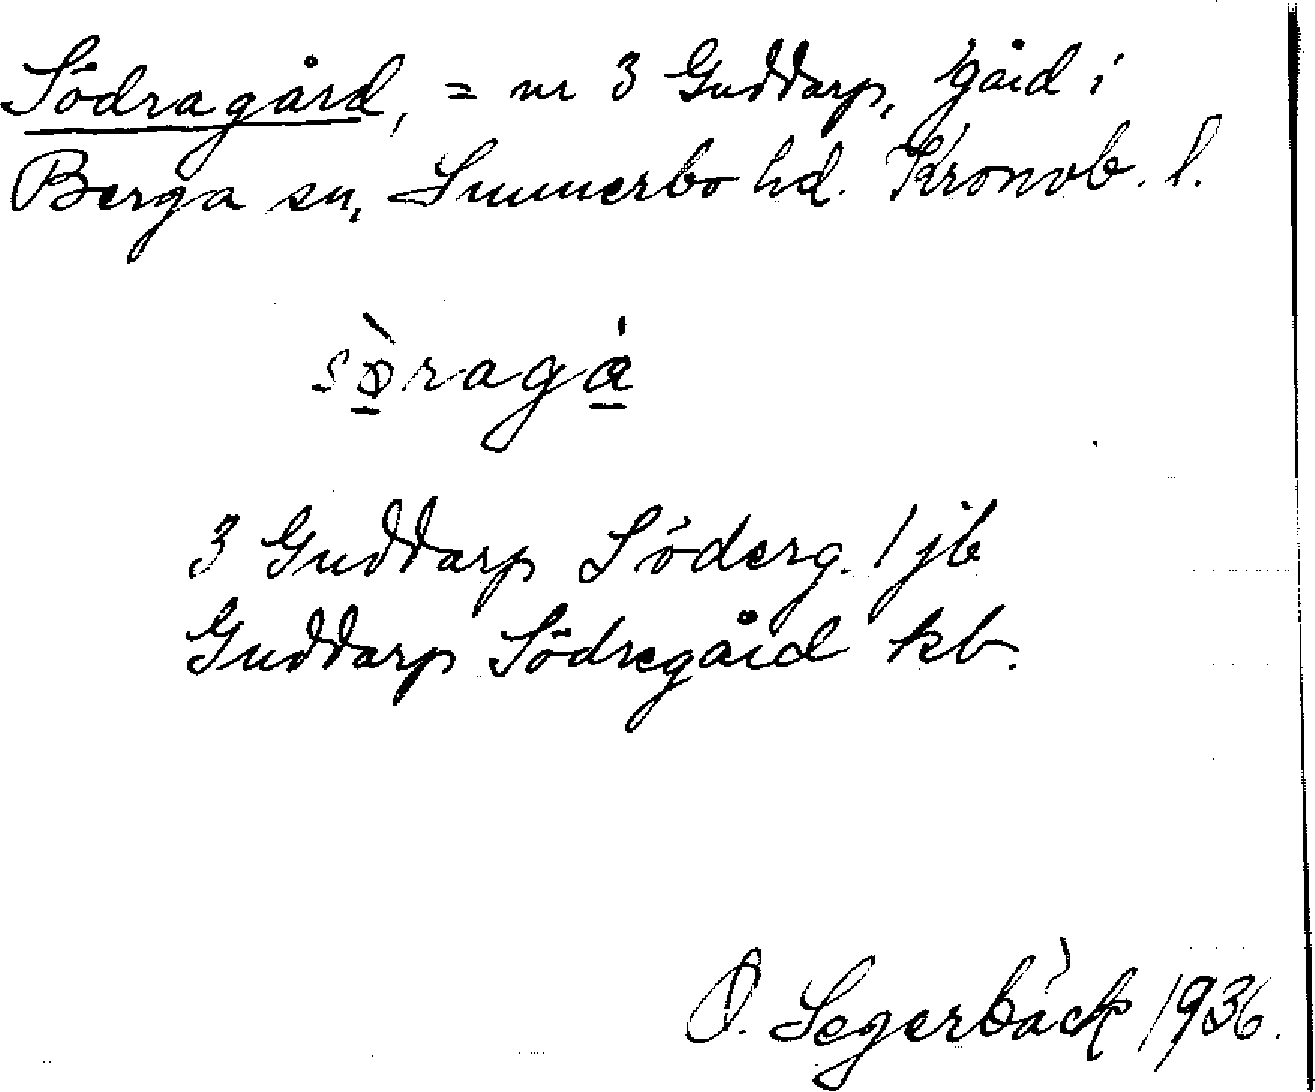 Södragård, = nr 3 Guddarp, gård i
Berga sn, Sunnerbo hd. Kronob. l.
sø̀ragá
3 Guddarp Söderg. 1 jb
Guddarp Södregård kb.
O. Segerbäck 1936.